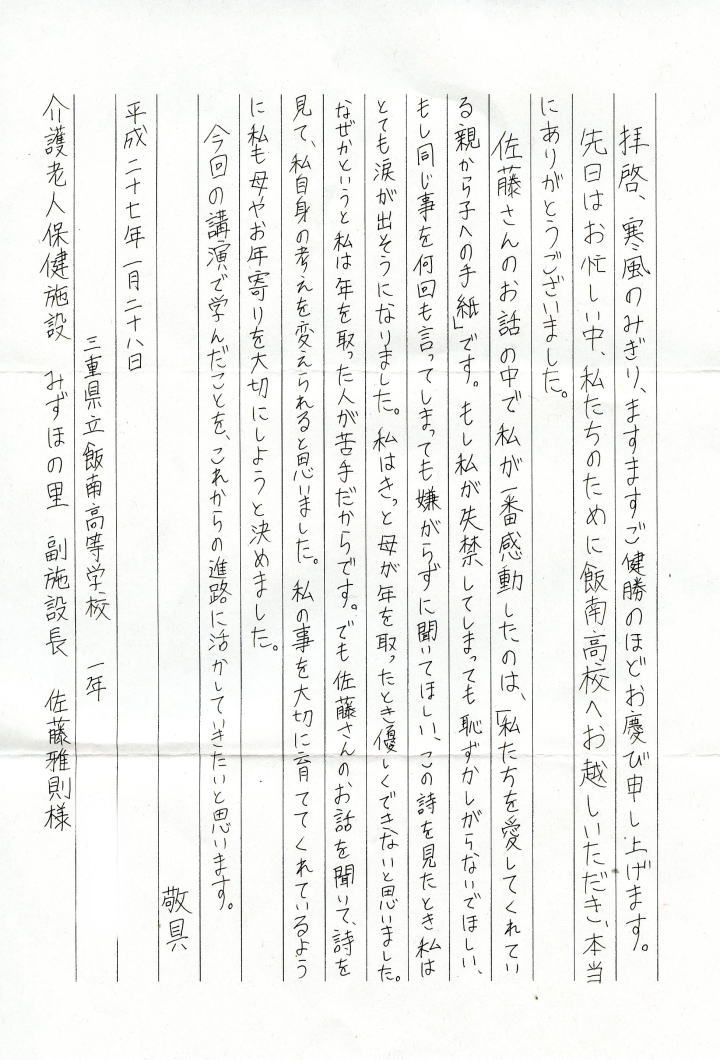 拝啓、寒風のみぎり、ますますご健勝のほどお慶び申し上げます。
先日はお忙しい中、私たちのために飯南高校へお越しいただき、本当
にありがとうございました。
佐藤さんのお話の中で私が一番感動したのは、「私たちを愛してくれてい
る親から子への手紙」です。もし私が失禁してしまっても恥ずかしがらないでほしい、
もし同じ事を何回も言ってしまっても嫌がらずに聞いてほしい、この詩を見たとき私は
とても涙が出そうになりました。私はきっと母が年を取ったとき優しくできないと思いました。
なぜかというと私は年を取った人が苦手だからです。でも佐藤さんのお話を聞いて、詩を
見て、私自身の考えを変えられると思いました。私の事を大切に育ててくれているよう
に私も母やお年寄りを大切にしようと決めました。
今回の講演で学んだことを、これからの進路に活かしていきたいと思います。
敬具
平成二十七年一月二十八日
三重県立飯南高等学校 一年
介護老人保健施設 みずほの里 副施設長 佐藤雅則様